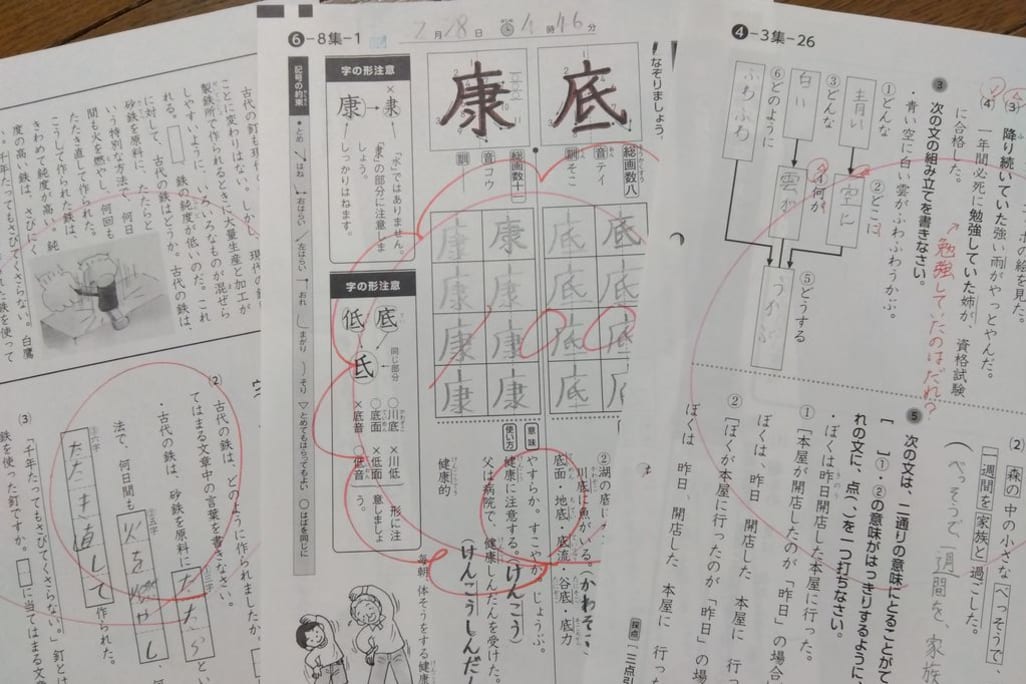 ❹-3集-26
❸ 次の文の組み立てを書きなさい。
・青い空に白い雲がふわふわうかぶ。
①どんな
青い
②どこに
空に
③どんな
白い
④何が
雲が
⑤どうする
うかぶ
⑥どのように
ふわふわ
③ 降り続いていた強い雨がやっとやんだ。
④ 一年間必死に勉強していた姉が、資格試験
に合格した。
勉強していたのはだれ?
② 森の中の小さなべっそうで、
一週間を家族と過ごした。
べっそうで一週間を、家族
❺ 次の文は、二通りの意味にとることがで
[ ]①・②の意味がはっきりするように、
れの文に、点(、)を一つ打ちなさい。
・ぼくは昨日開店した本屋に行った。
①[本屋が開店したのが「昨日」の場合
ぼくは、昨日 開店した 本屋に 行っ
②[ぼくが本屋に行ったのが「昨日」の場
ぼくは 昨日、開店した 本屋に 行っ
❻-8集-1
2月28日 4時46分
なぞりましょう。
底
総画数八
音 テイ
訓 そこ
康
総画数十一
音 コウ
訓
底 底 康 康
底 底 康 康
底 底 康 康
底 康 康
字の形注意
康→隶
「水」ではありません。
「康」の部分に注意しま
しょう。
しっかりはねます。
字の形注意
底 低
氏
同じ部分
○川底 ×川低
○底面 ×低面
×底音 ○低音
形に注
意しましょ
う。
記号の約束
とめ はね 右はらい 左はらい おれ まがり そり ▽とめてもはらってもよい ○はばを同じに
②湖の底に
川底に魚がいる。(かわぞこ
底面・地底・底流・谷底・底力
意味
やすらか。すこやか。じょうぶ。
使い方
健康に注意する。(けんこう)
父は病院で、健康しんだんを受けた。
(けんこうしんだん
健康的
毎朝、体そうをする健康
採点
[三点引
古代の釘も現
ことに変わりはない。しかし、現代の
製鉄所で作られるときに大量生産と加工が
しやすいように、いろいろなものが混ぜら
れる。
鉄の純度が低いのだ。これ
に対して、古代の鉄はどうか。古代の鉄は、
砂鉄を原料に、たたらと
いう特別な方法で、何日
間も火を燃やし、何回も
たたき直して作られた。
こうして作られた鉄は、
きわめて純度が高い。純
度の高い鉄は、さびにく
② 古代の鉄は、どのように作られましたか。
てはまる文章中の言葉を書きなさい。
・古代の鉄は、砂鉄を原料にたたらとい
法で、何日間も火を燃やし、
たたき直して作られた。
③「千年たってもさびてくさらない。」釘とは
鉄を使った釘ですか。□に当てはまる文章